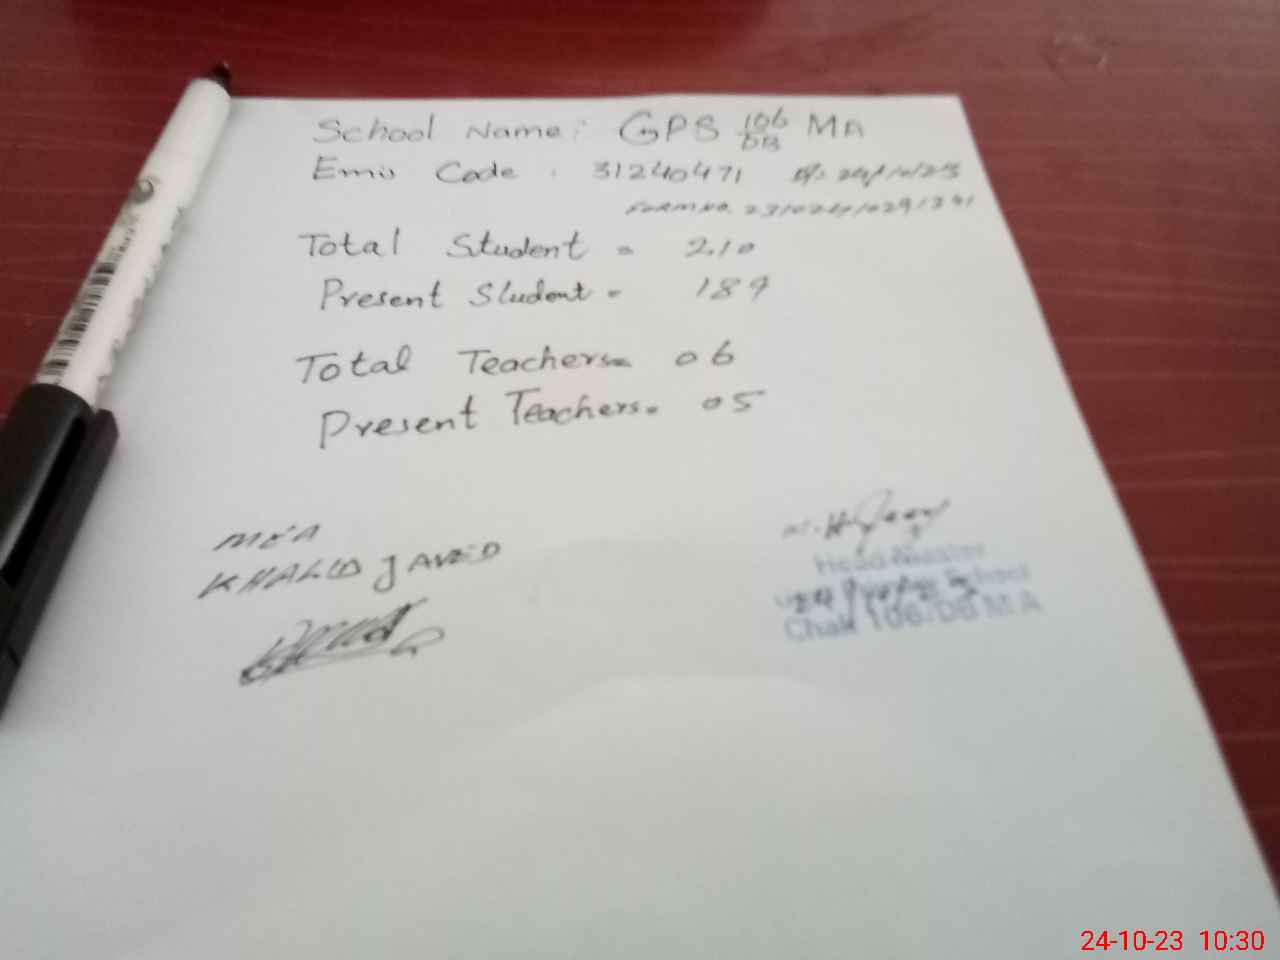 School Name: GPS 106/DB MA
Emis Code : 31240471 Dt: 24/10/23
FORM NO. 23102410291341
Total Student = 210
Present Student = 189
Total Teachers = 06
Present Teachers = 05
MEA
KHALID JAVED
Head Master
School
Chak 106/DB M A
24-10-23 10:30